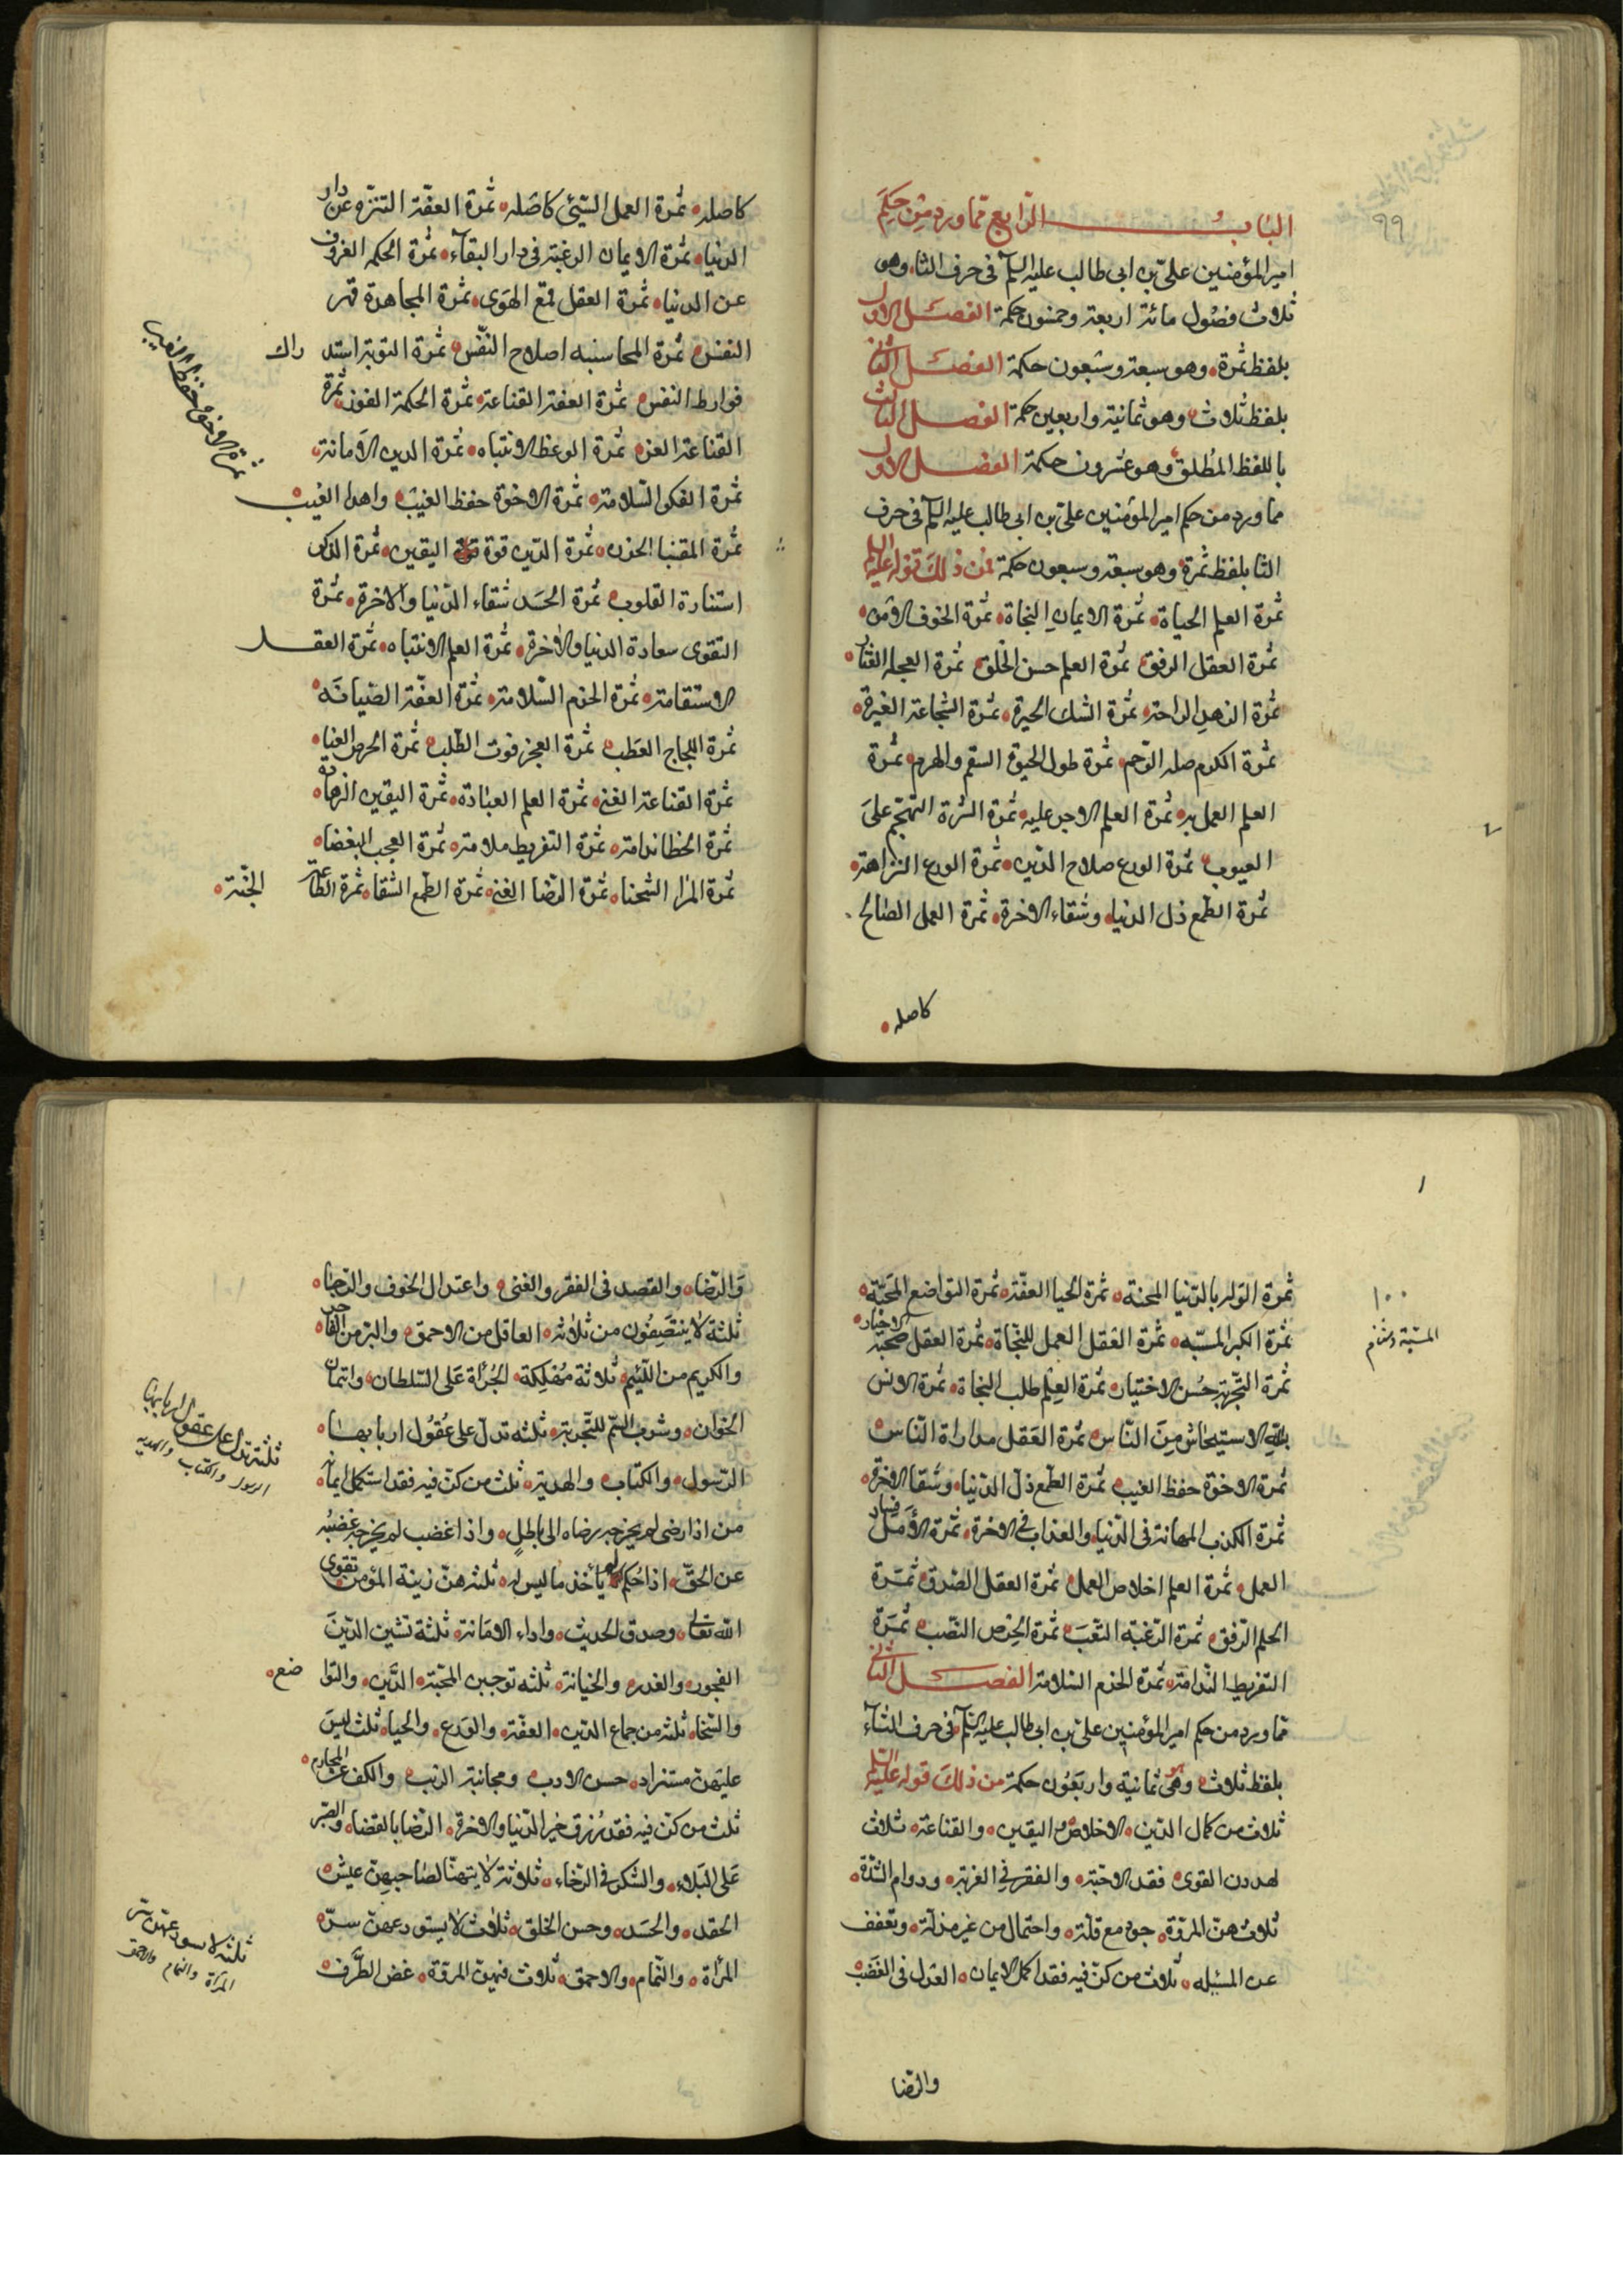 ٩٩
البــــــاب الرابع مما ورد من حكم
امير المؤمنين على بن ابى طالب عليه السلم فى حرف الثا وهى
ثلاث فصول مائة اربعة وخمسون حكمة الفصــل الاول
بلفظ ثمرة وهو سبعة وسبعون حكمة الفصــل الثانى
بلفظ ثلاث وهو ثمانية واربعين حكمة الفصــل الثالث
باللفظ المطلق وهو عشرون حكمة الفصــل الاول
مما ورد من حكم امير المؤمنين على بن ابى طالب عليه السلم فى حرف
الثا بلفظ ثمرة وهو سبعة وسبعون حكمة فمن ذلك قوله عليه السلم
ثمرة العلم الحياة ثمرة الايمان النجاة ثمرة الخوف الامن
ثمرة العقل الرفق ثمرة العلم حسن الخلق ثمرة العجلة العثار
ثمرة الزهد الراحة ثمرة الشك الحيرة ثمرة الشجاعة الغيرة
ثمرة الكرم صلة الرحم ثمرة طول الحيوة السقم والهرم ثمرة
العلم العمل به ثمرة العلم الاجر عليه ثمرة الشره التهجم على
العيوب ثمرة الورع صلاح الدين ثمرة الورع النزاهة
ثمرة الطمع ذل الدنيا وشقاء الاخرة ثمرة العمل الصالح
كاصله
كاصله ثمرة العمل السيئ كاصله ثمرة العفة التنزه عن دار
الدنيا ثمرة الايمان الرغبة فى دار البقاء ثمرة الحكمة العزوف
عن الدنيا ثمرة العقل قمع الهوى ثمرة المجاهدة قهر
النفس ثمرة المحاسبة اصلاح النفس ثمرة التوبة استد راك
فوارط النفس ثمرة العفة القناعة ثمرة الحكمة الفوز ثمرة
القناعة العز ثمرة الوعظ الانتباه ثمرة الدين الامانة
ثمرة الفكر السلامة ثمرة الاخوة حفظ الغيب واهدا العيب
ثمرة الاخوة حفظ الغيب
ثمرة المقتنيا الحزن ثمرة الدين قوة اليقين ثمرة الذكر
استنارة القلوب ثمرة الحسد شقاء الدنيا والاخرة ثمرة
التقوى سعادة الدنيا والاخرة ثمرة العلم الانتباه ثمرة العقــل
الاستقامة ثمرة الحزم السلامة ثمرة العفة الصيانة
ثمرة اللجاج العطب ثمرة العجز فوت الطلب ثمرة الحرص العنا
ثمرة القناعة الغنى ثمرة العلم العبادة ثمرة اليقين الزهادة
ثمرة الخطا ندامة ثمرة التفريط ملامة ثمرة العجب البغضا
ثمرة المرا الشحنا ثمرة الرضا الغنى ثمرة الطمع الشقا ثمرة الطاعة الجنة
١٠٠
ثمرة الوله بالدنيا المحنة ثمرة الحيا العفة ثمرة التواضع المحبة
ثمرة الكبر المسبة ثمرة العقل العمل للنجاة ثمرة العقل صحبة الاخيار
ثمرة التجربة حسن الاختيار ثمرة العلم طلب النجاة ثمرة الانس
بالله الاستيحاش من الناس ثمرة العقل مداراة الناس
ثمرة الاخوة حفظ الغيب ثمرة الطمع ذل الدنيا وشقا الاخرة
ثمرة الكذب المهانة فى الدنيا والعذاب فى الاخرة ثمرة الامل فساد
العمل ثمرة العلم اخلاص العمل ثمرة العقل الصدق ثمرة
الحلم الرفق ثمرة الرغبة التعب ثمرة الحرص النصب ثمرة
التفريط الندامة ثمرة الحزم السلامة الفصــل الثانى
مما ورد من حكم امير المؤمنين على بن ابى طالب عليه السلم فى حرف الثاء
بلفظ ثلاث وهى ثمانية واربعون حكمة من ذلك قوله عليه السلم
ثلاث من كمال الدين الاخلاص واليقين والقناعة ثلاث
يهددن القوى فقد الاحبة والفقر فى الغربة ودوام الشدة
ثلاث هن المروة جود مع قلة واحتمال من غير مذلة وتعفف
عن المسئلة ثلاث من كن فيه فقد اكمل الايمان العدل فى الغضب
والرضا
والرضا والقصد فى الفقر والغنى واعتدال الخوف والرجا
ثلثة لا ينتصفون من ثلاثة العاقل من الاحمق والبر من الفاجر
والكريم من اللئيم ثلاثة مهلكة الجراة على السلطان وائتمان
الخوان وشرب السم للتجربة ثلثة تدل على عقول اربابها
ثلثة تدل على عقول اربابها
الرسول والكتاب والهديه
الرسول والكتاب والهدية ثلث من كن فيه فقد استكمل ايمانه
من اذا رضى لم يخرجه رضاه الى باطل واذا غضب لم يخرجه غضبه
عن الحق اذا حكم لم ياخذ ما ليس له ثلثة هن زينة المؤمن تقوى
الله تعالى وصدق الحديث واداء الامانة ثلثة تشين الدين
الفجور والغدر والخيانة ثلثة توجبن المحبة الدين والتوا ضع
والسخا ثلثة من جماع الدين العفة والورع والحيا ثلث ليس
عليهن مستزاد حسن الادب ومجانبة الريب والكف عن المحارم
ثلث من كن فيه فقد رزق خير الدنيا والاخرة الرضا بالقضا والصبر
على البلاء والشكر فى الرخاء ثلاثة لا يتهنا لصاحبهن عيش
الحقد والحسد وحسن الخلق ثلاث لا يستودعهن سر
المراة والنمام والاحمق ثلاث فيهن المروة غض الطرف
ثلثه لا يستودعهن سر
المرأة والنمام والاحمق